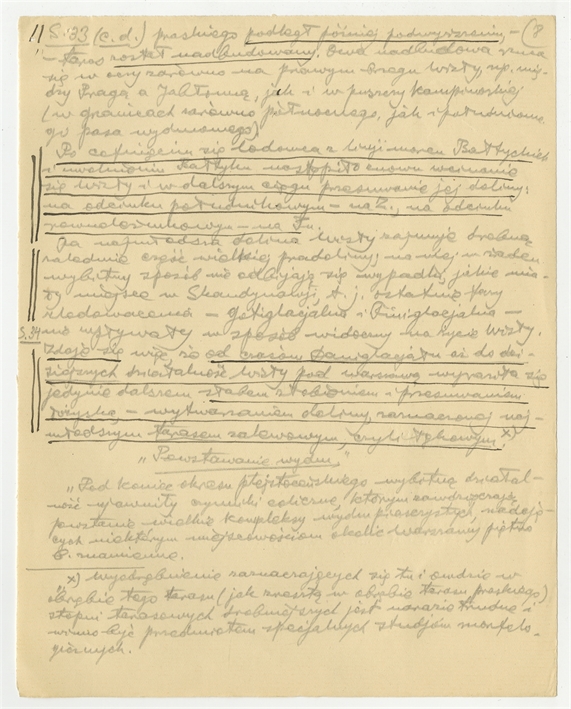 S. 33 (c. d.) praskiego podległ później podwyższeniu, – (8
– taras został nadbudowany. Owa nadbudowa
się w oczy zarówno na prawym brzegu Wisły, np. mię-
dzy Pragą a Jabłonną, jak i w puszczy kampinoskiej
(w granicach zarówno północnego, jak i południowe-
go pasa wydmowego)
Po cofnięciu się lodowca z linji moren Bałtyckich
i uwolnieniu Bałtyku nastąpiło znowu wcinanie
się Wisły i w dalszym ciągu przesuwanie jej doliny:
na odcinku południkowym – na Z., na odcinku
równoleżnikowym – na Pn.
Ta najmłodsza dolina Wisły zajmuje drobną
zaledwie część wielkiej pradoliny; na niej w żaden
wybitny sposób nie odbijają się wypadki, jakie mia-
ły miejsce w Skandynawji, t. j. ostatnie fazy
zlodowacenia – Gotiglacjalna i Finiglacjalna –
nie wpływały w sposób widoczny na życie Wisły.
S. 34
Zdaje się więc, że od czasów Daniglacjału aż do dzi-
siejszych działalność Wisły pod Warszawą wyraziła się
jedynie dalszem słabem żłobieniem i przesuwaniem
łożyska, – wytwarzaniem doliny, zaznaczonej naj-
młodszym tarasem zalewowym, czyli łąkowym. x)
„Powstawanie wydm."
„Pod koniec okresu plejstoceńskiego wybitną działal-
ność ujawniły czynniki eoliczne, którym zawdzięczają
powstanie wielkie kompleksy wydm piaszczystych, nadają-
cych niektórym miejscowościom okolic Warszawy piętno
b. znamienne.
x) Wyodrębnienie zaznaczających się tu i owdzie w
obrębie tego tarasu (jak zresztą w obrębie tarasu praskiego)
stopni tarasowych drobniejszych jest narazie trudne i
winno być przedmiotem specjalnych studjów morfolo-
gicznych.